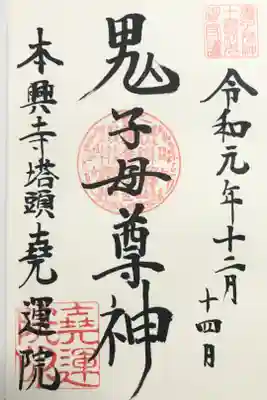 令和元年十二月
十四日
鬼子母尊神
本興寺塔頭堯運院
堯運
院